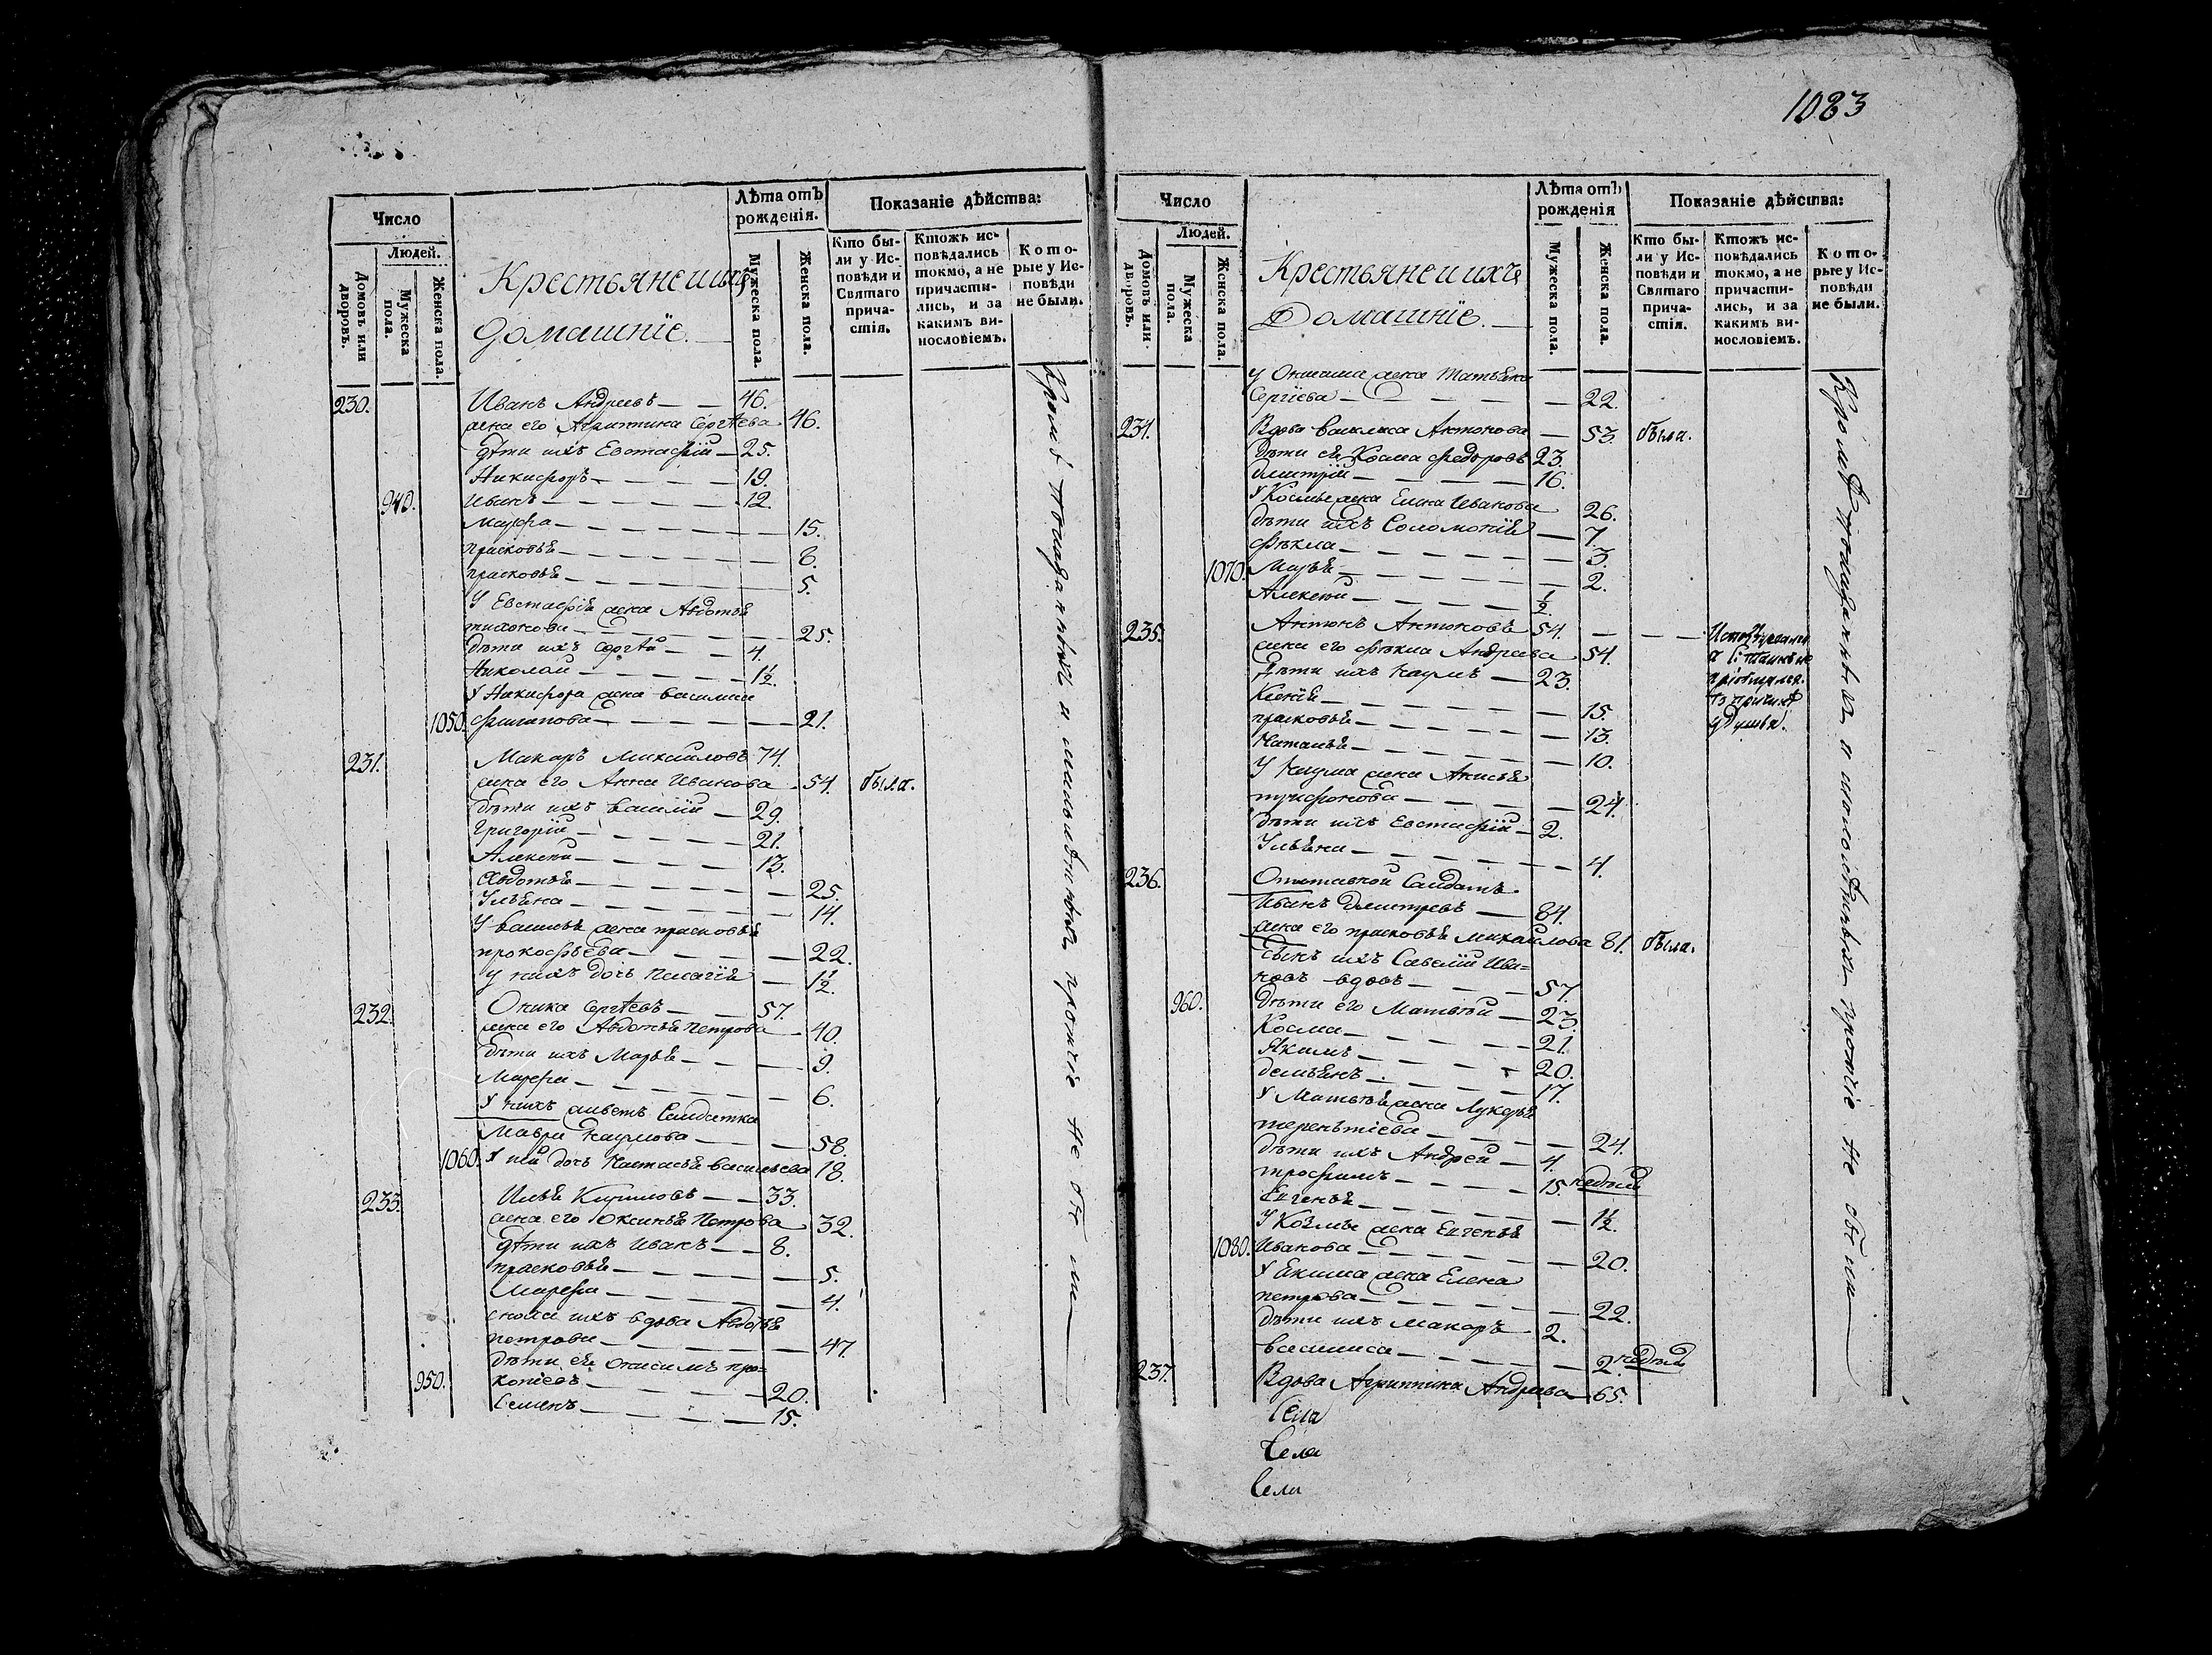 1083
Число
Людей.
Домовъ или дворовъ.
Мужеска пола.
Женска пола.
Крестьяне и ихъ
домашнїе.
Лѣта отъ рожденія.
Мужеска пола.
Женска пола.
Показаніе дѣйства:
Кто были у Исповѣди и Святаго причастія.
Ктожъ исповѣдались токмо, а не причастились, и за какимъ винословіемъ.
Которые у Исповѣди не были.
230. Иванъ Андреевъ 46.
жена его Агрипина Сергѣева 46.
дѣти ихъ Евстафїй 25.
Никифоръ 19.
940. Иванъ 12.
Марфа 15.
прасковья 8.
прасковья 5.
У Евстафїя жена Авдотья
тихонова 25.
дѣти ихъ Сергѣй 4.
Николай 1½.
У Никифора жена василиса
1050. филипова 21.
231. Макаръ Михайловъ 74.
жена его Анна Иванова 54. была.
дѣти ихъ василїй 29.
Григорїй 21.
Алексѣй 13.
Авдотья 25.
Ульяна 14.
У василья жена прасковья
прокофьева 22.
у нихъ дочь Пелагїя 1½.
232. Оника Сергѣевъ 57.
жена его Авдотья Петрова 40.
дѣти ихъ Марья 9.
Марфа 6.
У нихъ живетъ Салдатка
Мавра Наумова 58.
1060. У ней дочь Настасья васильева 18.
233. Илья Кириловъ 33.
жена его Оксинья Петрова 32.
дѣти ихъ Иванъ 8.
прасковья 5.
Марфа 4.
сноха ихъ вдова Авдотья
петрова 47.
дѣти ея Онисимъ про=
950. копїевъ 20.
Семенъ 15.
Кромѣ показанныхъ и малолѣтныхъ протчїе не были
Число
Людей.
Домовъ или дворовъ.
Мужеска пола.
Женска пола.
Крестьяне и ихъ
Домашнїе.
Лѣта отъ рожденія
Мужеска пола.
Женска пола.
Показаніе дѣйства:
Кто были у Исповѣди и Святаго причастія.
Ктожъ исповѣдались токмо, а не причастились, и за какимъ винословіемъ.
Которые у Исповѣди не были.
У Онисима жена Татьяна
Сергїева 22.
234. Вдова василиса Антонова 53. была.
дѣти ея Косма федоровъ 23.
дмитрїй 16.
У Космы жена Елена Иванова 26.
дѣти ихъ Соломонїя 7.
фекла 3.
1070. Марья 2.
Алексѣй ½.
235. Антонъ Антоновъ 54.
жена его фекла Андреева 54.
дѣти ихъ Наумъ 23.
Ксенїя 15.
прасковья 13.
Наталья 10.
У Наума жена Анисья
трифонова 24.
дѣти ихъ Евстафїй 2.
Ульяна 4.
236. Отставной Салдатъ
Иванъ дмитревъ 84.
жена его прасковья михайлова 81. была.
сынъ ихъ Савелїй Ива=
новъ вдовъ 57.
960. дѣти его Матвѣй 23.
Косма 21.
Якимъ 20.
демьянъ 17.
У Матвѣя жена Лукерья
терентїева 24.
дѣти ихъ Андрей 4.
трофимъ 15. недѣль
Евгенья 1½.
У Козмы жена Евгенья
1080. Иванова 20.
У Екима жена Елена
петрова 22.
дѣти ихъ Макаръ 2.
василиса 2. недѣли
237. Вдова Агрипина Андреева 65.
Села
Села
Села
Кромѣ показанныхъ и малолѣтныхъ протчїе не были